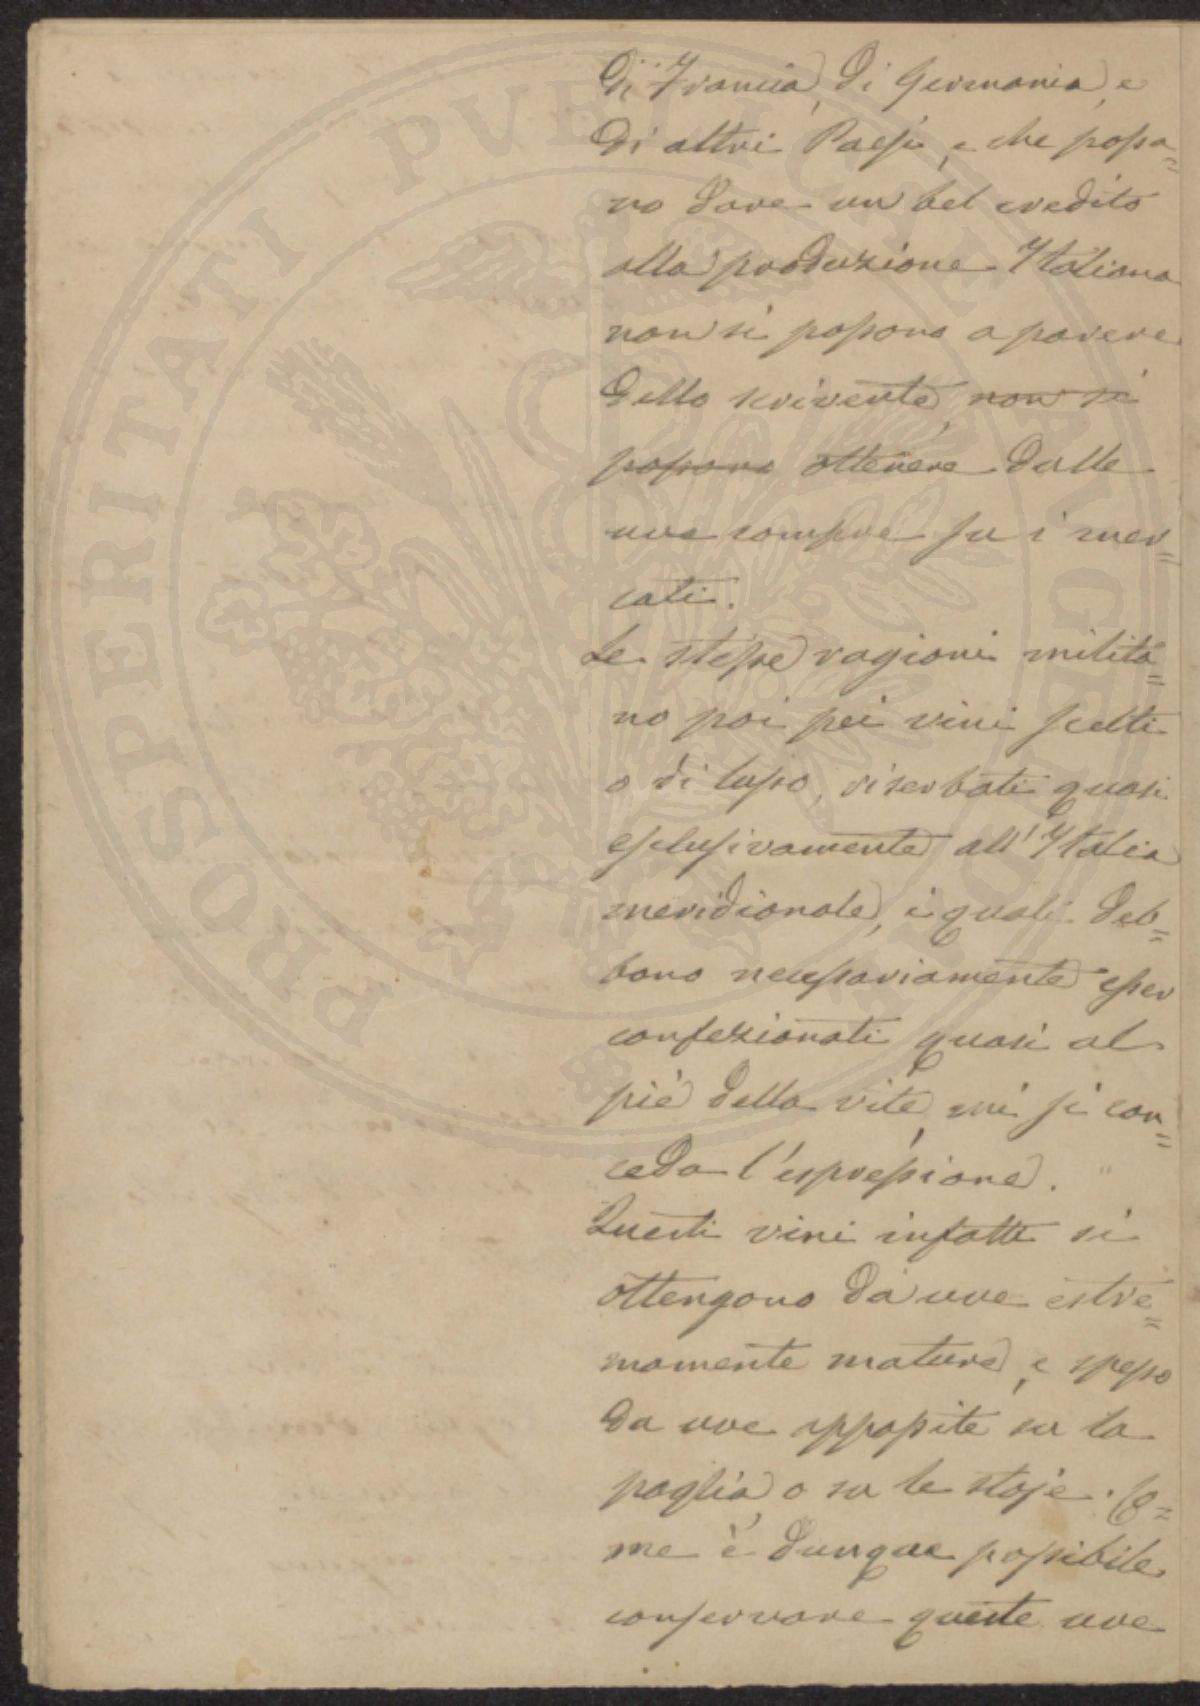 PROSPERITATI PVBLICAE AVGENDAE
di Francia, di Germania, e
di altri Paesi, e che possa=
no dare un bel credito
alla produzione Italiana
non si possono a parere
dello scrivente, non si
possono ottenere dalle
uve compre su i mer=
cati.
Le stesse ragioni milita=
no poi pei vini scelti
o di lusso, riserbati quasi
esclusivamente all'Italia
meridionale, i quali deb=
bono necessariamente esser
confezionati quasi al
piè della vite, mi si con=
ceda l'espressione.
Questi vini infatti si
ottengono da uve estre=
mamente mature, e spesso
da uve appassite su la
paglia, o su le stoje. Co=
me è dunque possibile
conservare queste uve